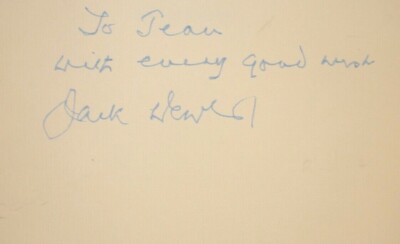 To Jean
with every good wish
Jack